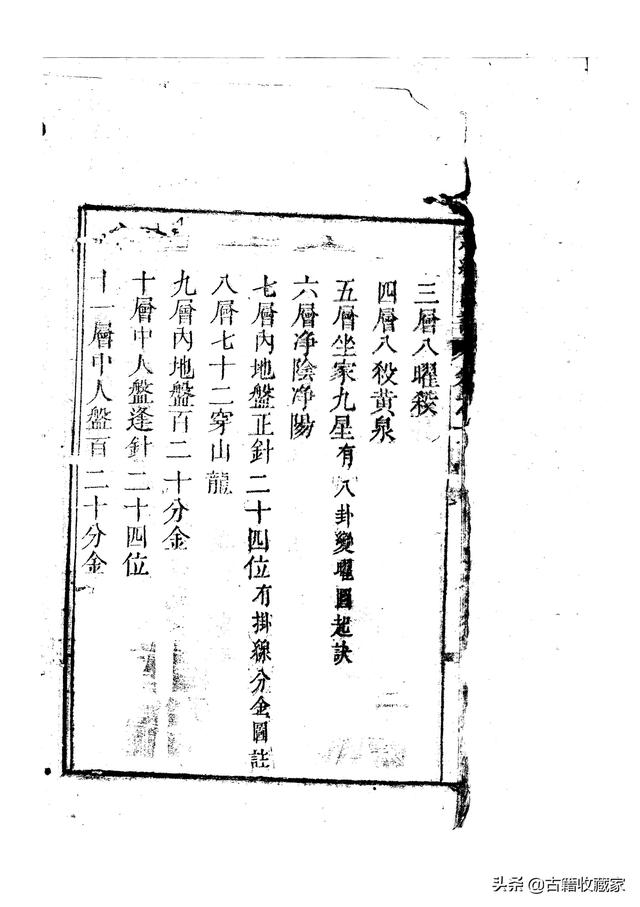 三層八曜殺
四層八殺黃泉
五層坐家九星有八卦變曜圖起訣
六層净陰净陽
七層內地盤正針二十四位有掛線分金圖註
八層七十二穿山龍
九層內地盤百二十分金
十層中人盤逢針二十四位
十一層中人盤百二十分金
头条@古籍收藏家